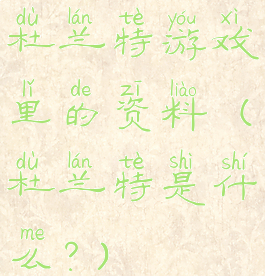 dù lán tè yóu xì
杜兰特游戏
lǐ de zī liào
里的资料（
dù lán tè shì shí
杜兰特是什
me
么？）